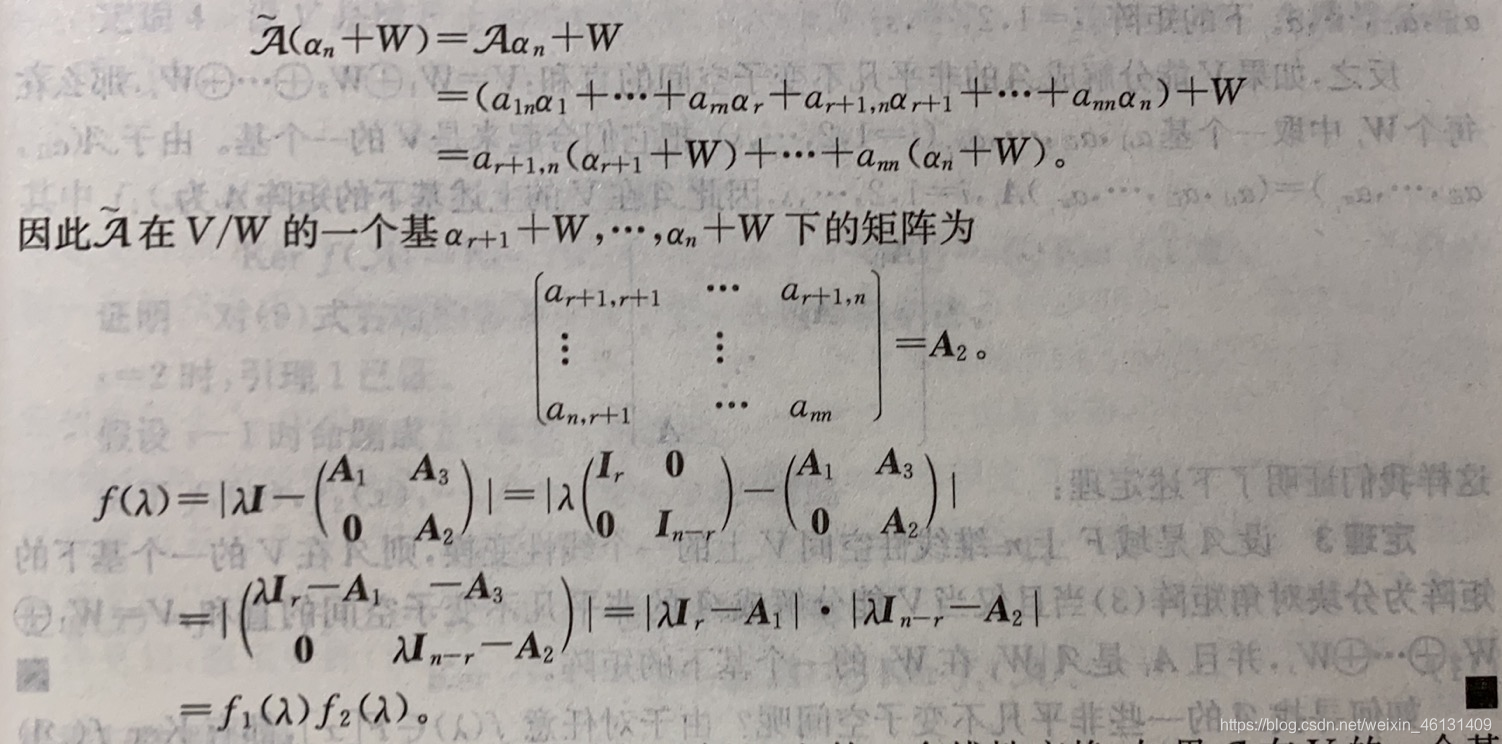 Ã(αn+W)=𝒜αn+W
=(a1nα1+⋯+arnαr+ar+1,nαr+1+⋯+annαn)+W
=ar+1,n(αr+1+W)+⋯+ann(αn+W)。
因此Ã在V/W的一个基αr+1+W,⋯,αn+W下的矩阵为
ar+1,r+1 ⋯ ar+1,n
⋮ ⋮ =A2。
an,r+1 ⋯ ann
f(λ)=|λI-(A1 A3 0 A2)|=|λ(Ir 0 0 In-r)-(A1 A3 0 A2)|
=|(λIr-A1 -A3 0 λIn-r-A2)|=|λIr-A1|·|λIn-r-A2|
=f1(λ)f2(λ)。
https://blog.csdn.net/weixin_46131409